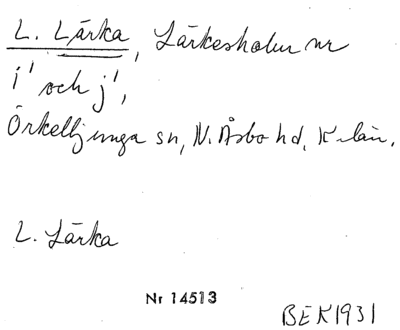 L. Lärka, Lärkesholm nr
i' och j',
Örkelljunga sn, N. Åsbo hd, K-län.
L. Lärka
Nr 14513
BEK1931